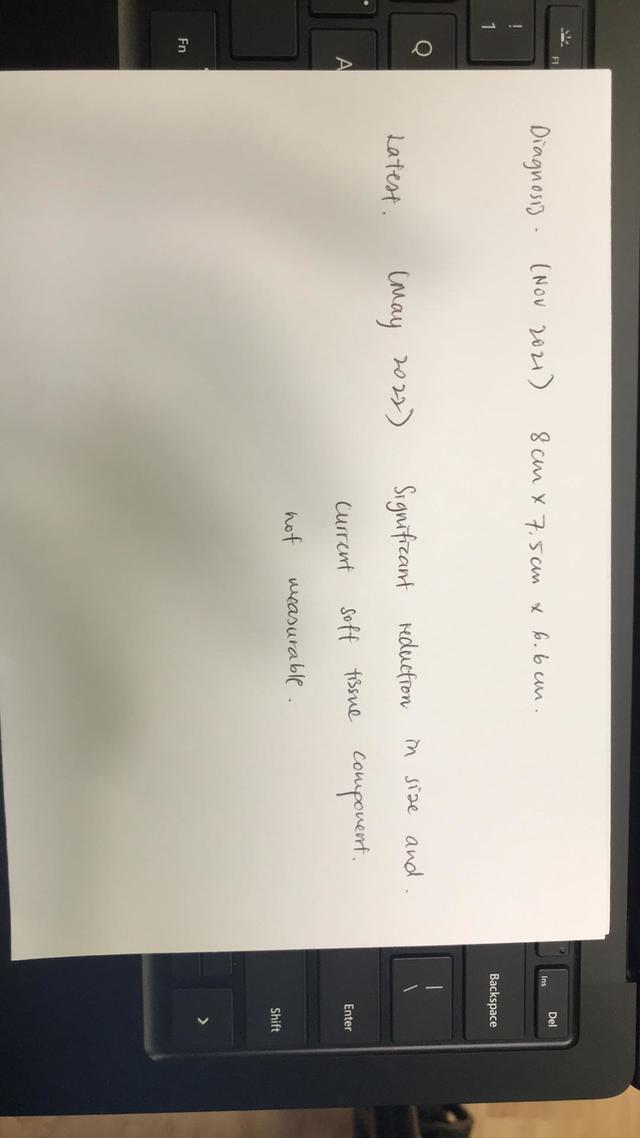 Diagnosis. (Nov 2021) 8cm x 7.5cm x 6.6cm.
Latest. (May 2022) Significant reduction in size and.
current soft tissue component.
not measurable.
Fn
A
Q
!
1
F1
Del
Ins
Backspace
|
\
Enter
Shift
>